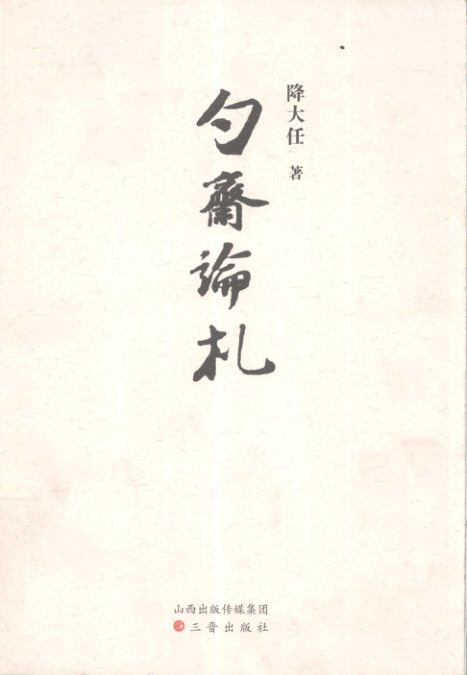 降大任 著
勺齋論札
山西出版传媒集团
三晋出版社